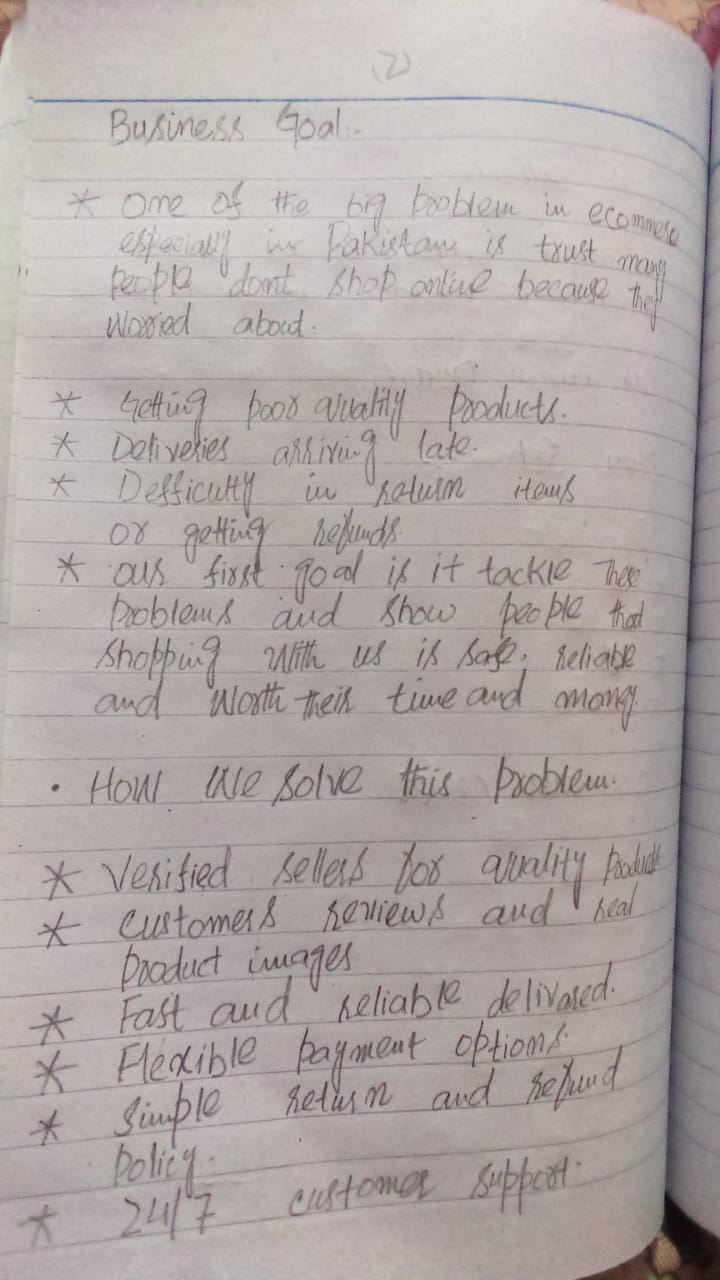 (2)
Business Goal:-
* One of the big problem in ecommerce
especially in Pakistan is trust many
people dont shop online because they
worried about.
* Getting poor quality products.
* Deliveries arriving late.
* Defficulty in return items
or getting refunds.
* our first goal is it tackle These
problems and show people that
shopping With us is safe, reliable
and Worth their time and money.
• How We solve this problem.
* Verified sellers for quality products
* customers reviews and real
product images
* Fast and reliable delivared.
* Flexible payment options.
* Simple return and refund
policy.
* 24/7 customer support.